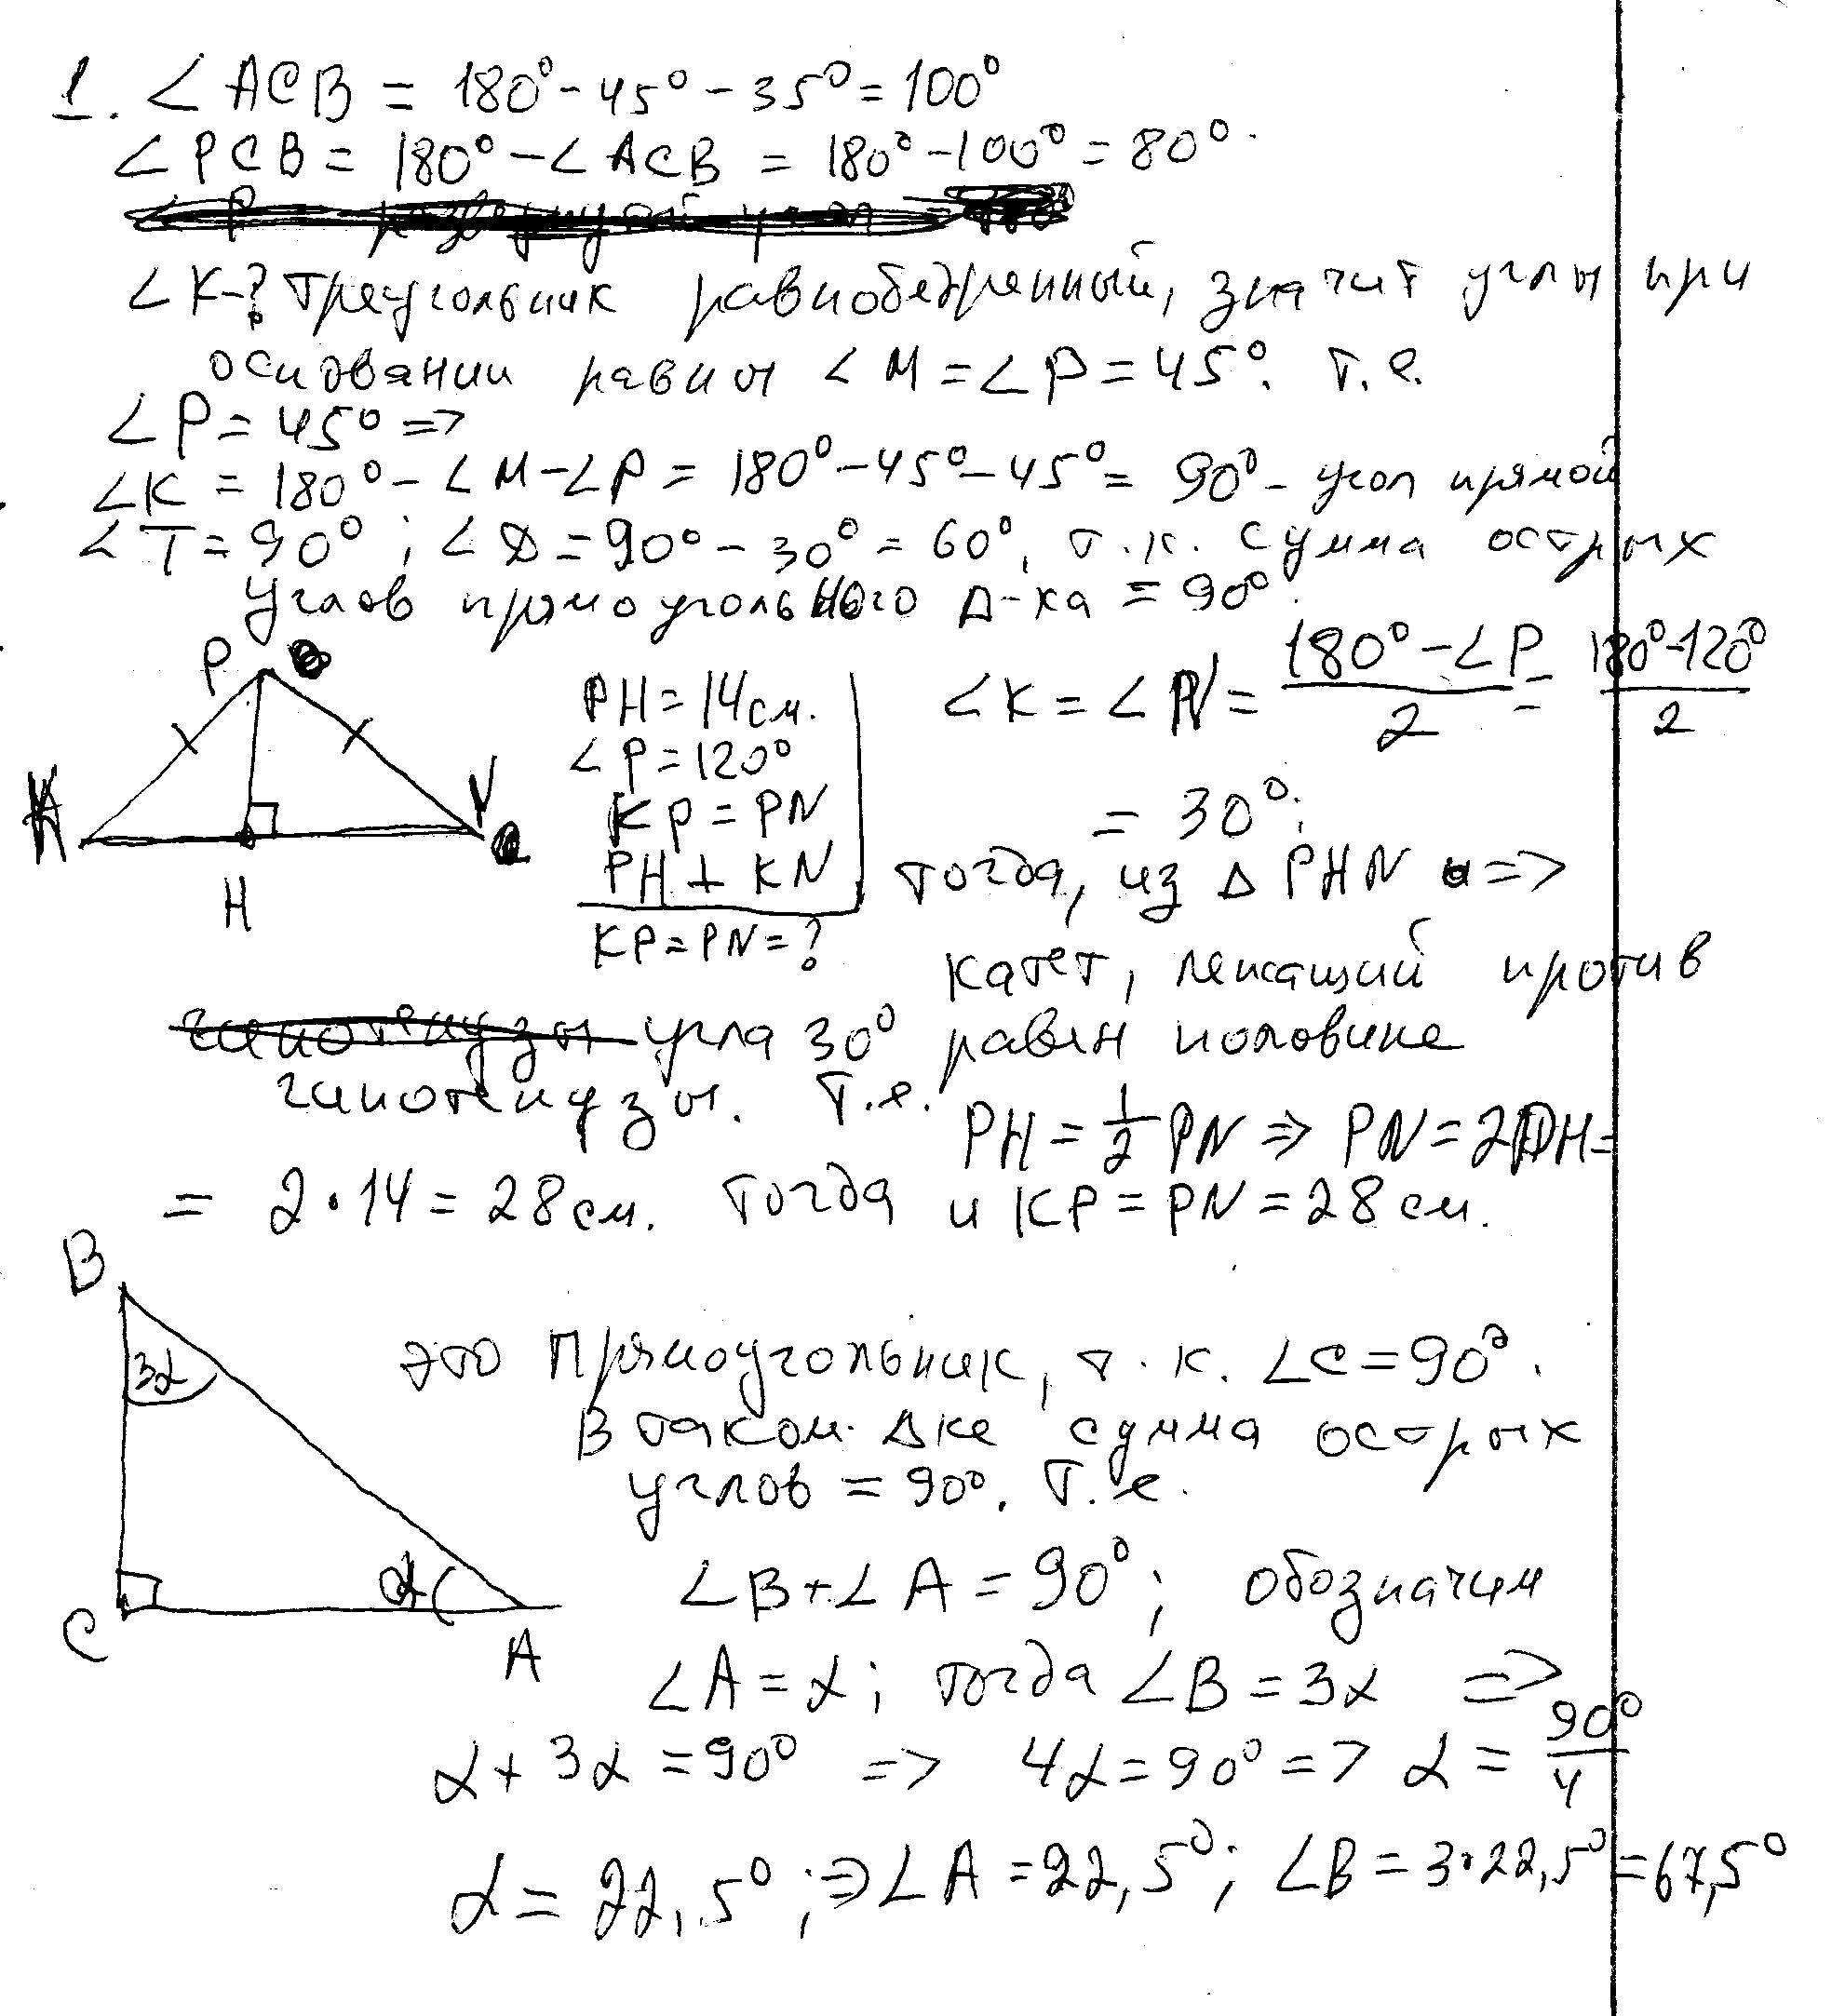 1. ∠ACB = 180° - 45° - 35° = 100°
∠PCB = 180° - ∠ACB = 180° - 100° = 80°.
∠K-? Треугольник равнобедренный, значит углы при
основании равны ∠M = ∠P = 45°. т.е.
∠P = 45° =>
∠K = 180° - ∠M - ∠P = 180° - 45° - 45° = 90° - угол прямой
∠T = 90°; ∠D = 90° - 30° = 60°, т.к. сумма острых
углов прямоугольного Δ-ка = 90°.
P
K
N
H
PH = 14 см.
∠P = 120°
KP = PN
PH ⊥ KN
KP = PN = ?
∠K = ∠N = (180° - ∠P)/2 = (180° - 120°)/2
= 30°;
тогда, из Δ PHN =>
катет, лежащий против
гипотенузы угла 30° равен половине
гипотенузы. Т.е.
PH = 1/2 PN => PN = 2PH =
= 2 · 14 = 28 см. Тогда и KP = PN = 28 см.
B
3α
C
α
A
это Прямоугольник, т.к. ∠C = 90°.
В таком Δке сумма острых
углов = 90°. Т.е.
∠B + ∠A = 90°; обозначим
∠A = α; тогда ∠B = 3α =>
α + 3α = 90° => 4α = 90° => α = 90°/4
α = 22,5°; => ∠A = 22,5°; ∠B = 3·22,5° = 67,5°